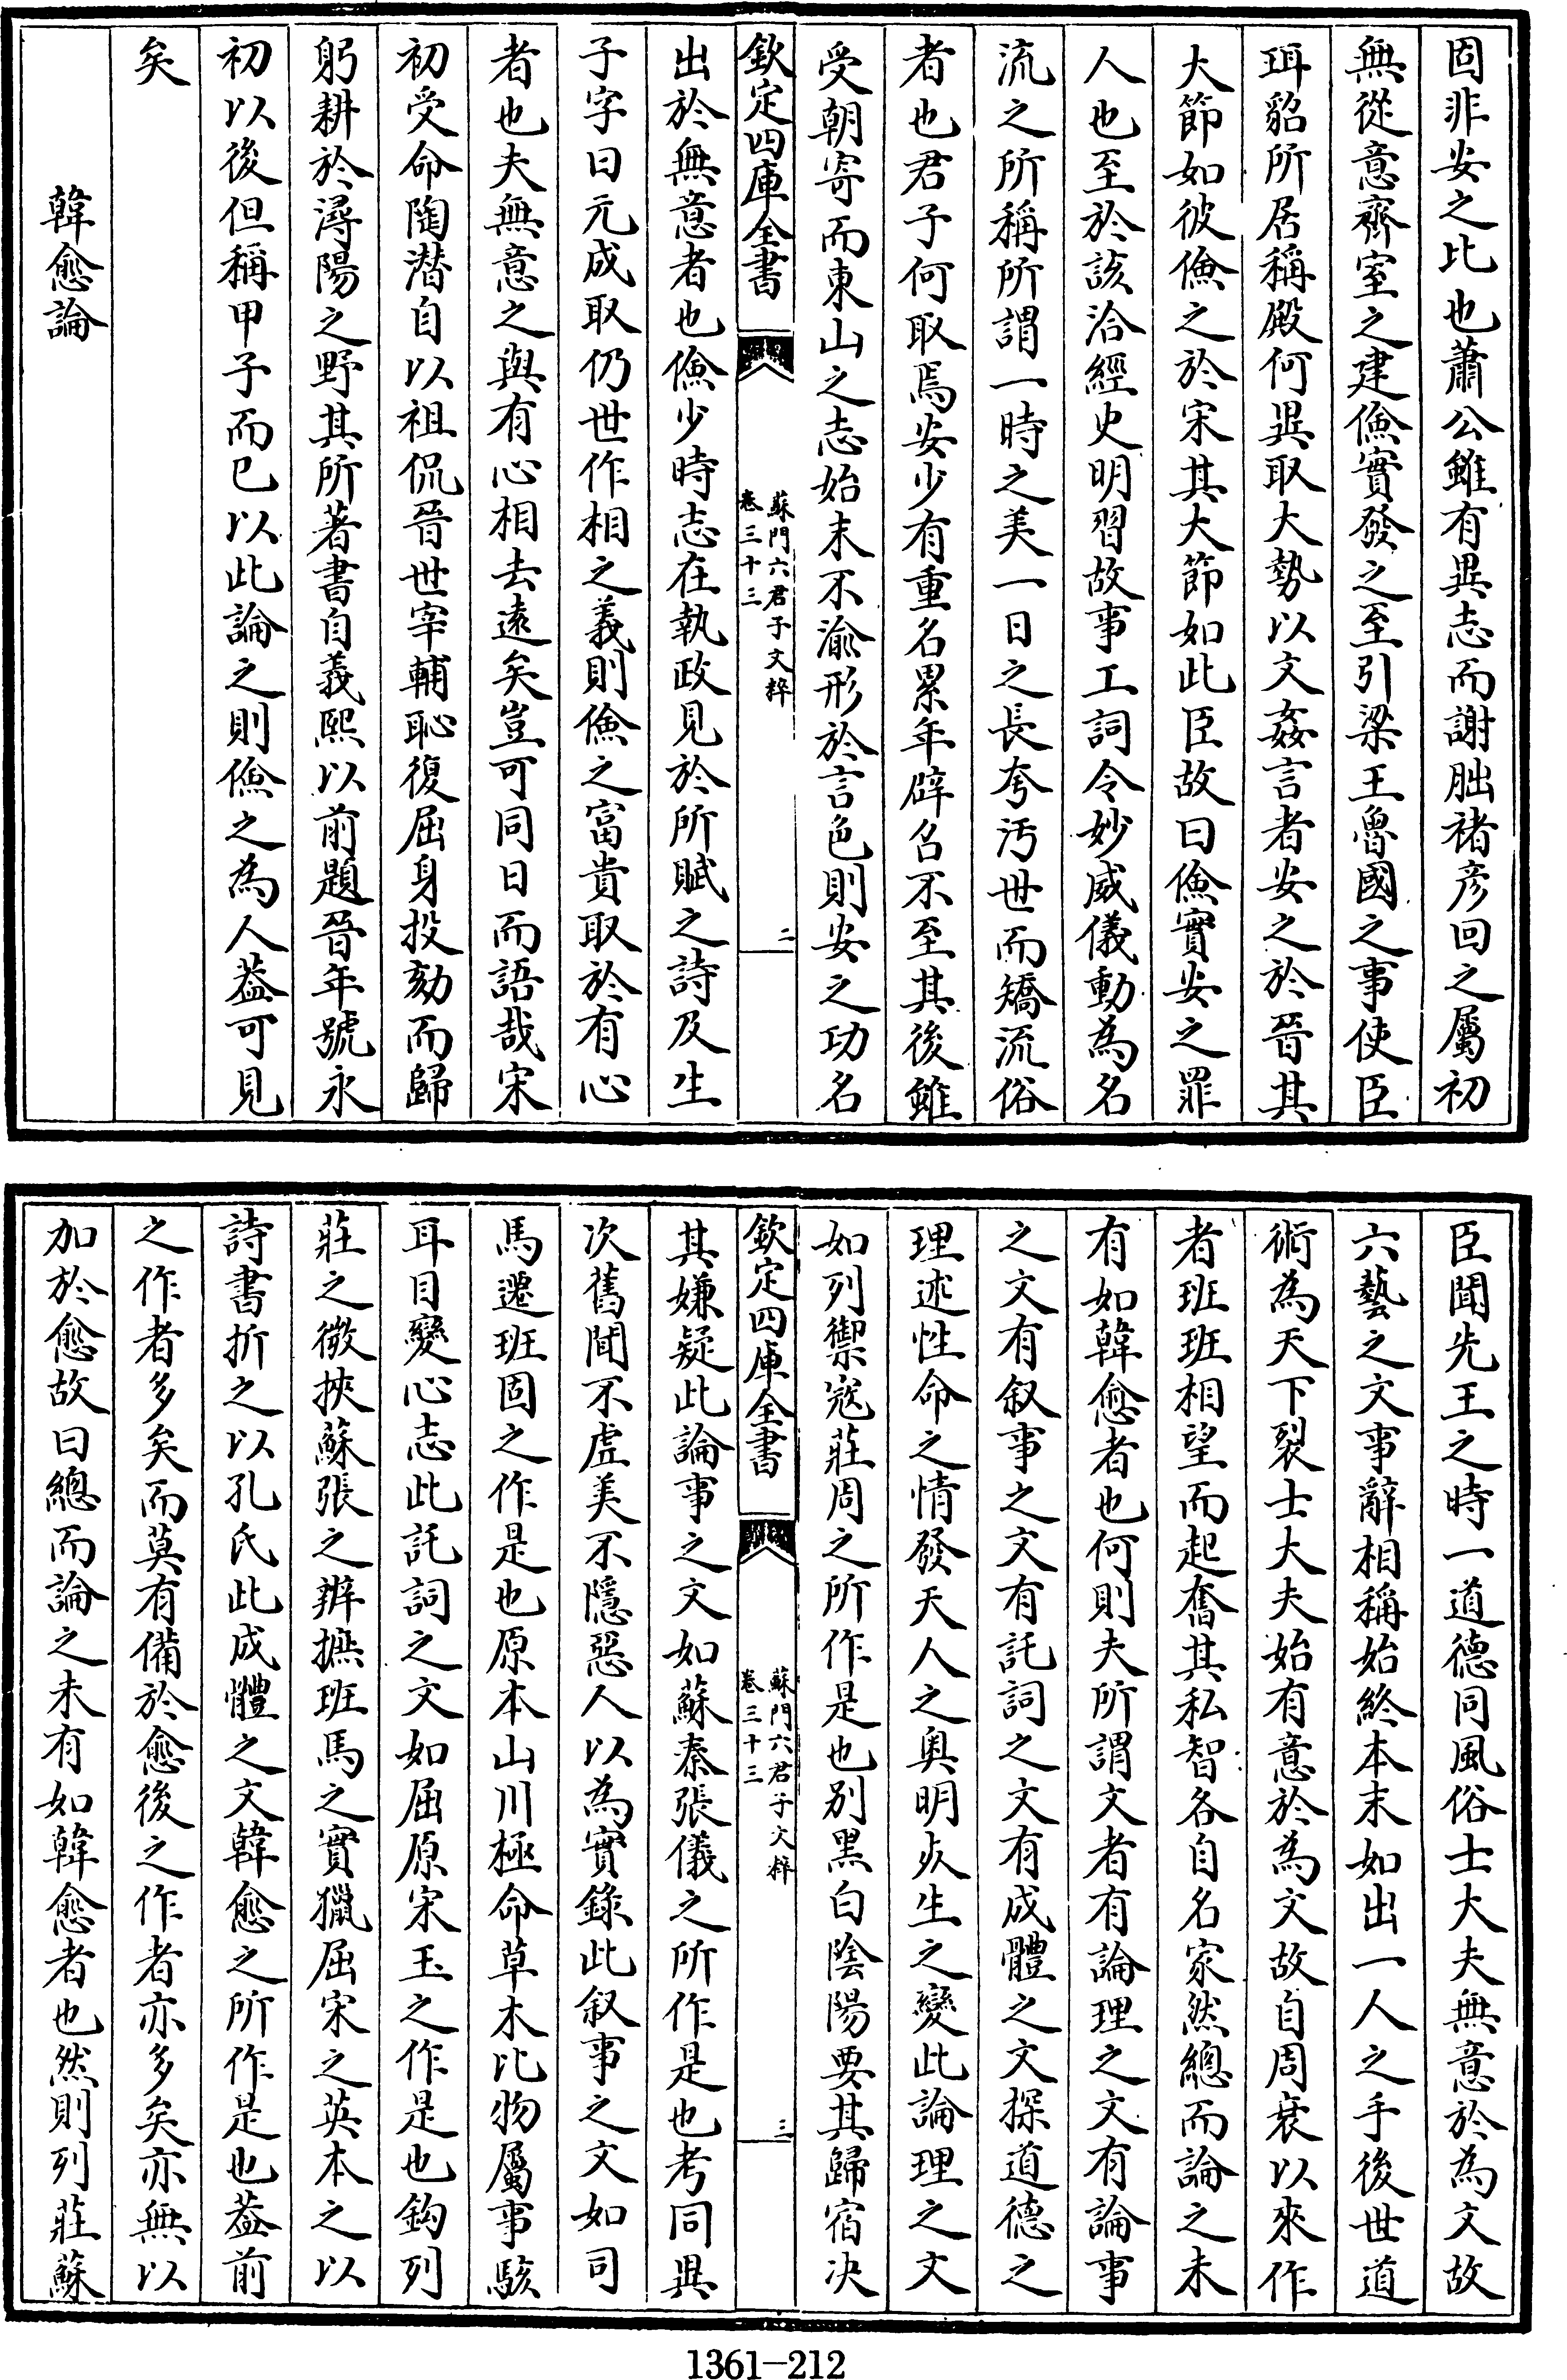 固非安之比也蕭公雖有異志而謝朏褚彦回之屬初
無從意齊室之建儉實發之至引梁王魯國之事使臣
珥貂所居稱殿何異取大勢以文姦言者安之於晉其
大節如彼儉之於宋其大節如此臣故曰儉實安之罪
人也至於該洽經史明習故事工詞令妙威儀動為名
流之所稱所謂一時之美一日之長夸汚世而矯流俗
者也君子何取焉安少有重名累年辟召不至其後雖
受朝寄而東山之志始末不渝形於言色則安之功名
欽定四庫全書
蘇門六君子文粹
卷三十三
二
出於無意者也儉少時志在執政見於所賦之詩及生
子字曰元成取仍世作相之義則儉之富貴取於有心
者也夫無意之與有心相去遠矣豈可同日而語哉宋
初受命陶潛自以祖侃晉世宰輔恥復屈身投劾而歸
躬耕於潯陽之野其所著書自義熙以前題晉年號永
初以後但稱甲子而已以此論之則儉之為人葢可見
矣
韓愈論
臣聞先王之時一道德同風俗士大夫無意於為文故
六藝之文事辭相稱始終本末如出一人之手後世道
術為天下裂士大夫始有意於為文故自周衰以來作
者班班相望而起奮其私智各自名家然總而論之未
有如韓愈者也何則夫所謂文者有論理之文有論事
之文有叙事之文有託詞之文有成體之文探道德之
理述性命之情發天人之奥明死生之變此論理之文
如列禦寇莊周之所作是也别黑白陰陽要其歸宿决
欽定四庫全書
蘇門六君子文粹
卷三十三
三
其嫌疑此論事之文如蘇秦張儀之所作是也考同異
次舊聞不虚美不隱惡人以為實錄此叙事之文如司
馬遷班固之作是也原本山川極命草木比物屬事駭
耳目變心志此託詞之文如屈原宋玉之作是也鈎列
莊之微挾蘇張之辨摭班馬之實獵屈宋之英本之以
詩書折之以孔氏此成體之文韓愈之所作是也葢前
之作者多矣而莫有備於愈後之作者亦多矣亦無以
加於愈故曰總而論之未有如韓愈者也然則列莊蘇
1361-212